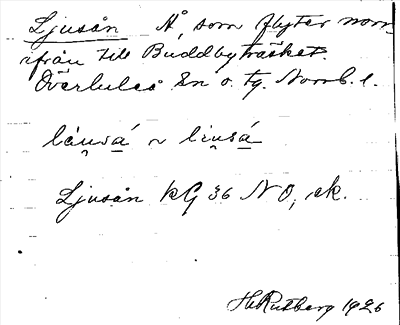 Ljusån Å, som flyter norr-
ifrån till Buddbyträsket.
Överluleå Sn o. tg. Norrb. l.
láu̯sá ~ liu̯sá
Ljusån kG 36 NO, ek.
H. Rutberg 1926